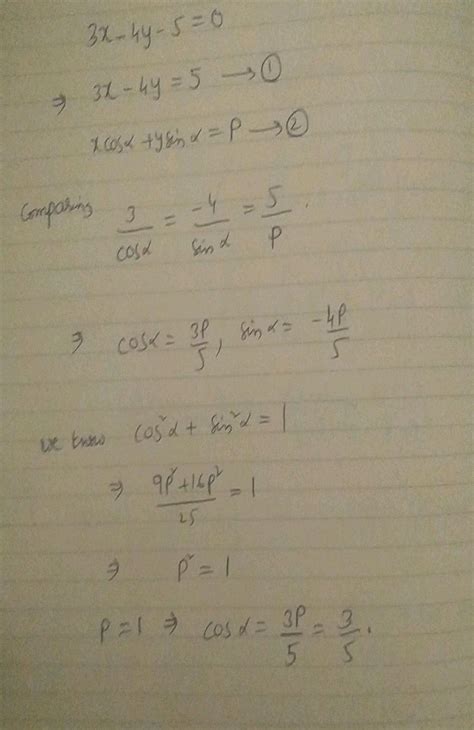 3x-4y-5=0
⇒ 3x-4y=5 → ①
xcosα+ysinα=P → ②
Comparing 3/cosα = -4/sinα = 5/P.
⇒ cosα = 3P/5, sinα = -4P/5
we know cos²α + sin²α = 1
⇒ (9P²+16P²)/25 = 1
⇒ P² = 1
P=1 ⇒ cosα = 3P/5 = 3/5.